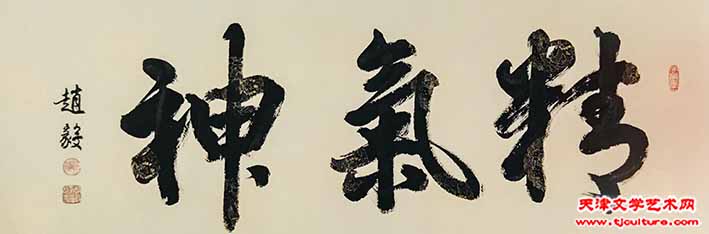 精氣神
趙毅
天津文学艺术网
www.tjculture.com